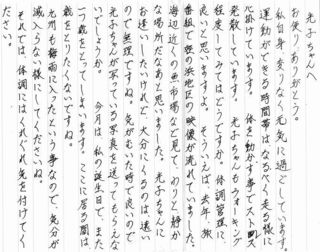 光子ちゃんへ
お便り、ありがとう。
私自身、変りなく元気に過ごしています。
運動ができる時間帯はなるべく走る様に
心掛けています。体を動かす事でストレス
発散しています。光子ちゃんもウォーキング
程度してみてはどうですか。体調管理に
良いと思いますよ。そういえば、去年、旅
番組で の浜地区の映像が流れていました。
海辺近くの魚市場など見て、わりと静か
な場所だなあと思いました。光子ちゃんに
お逢いしたいけれど、大分にくるのは遠い
ので無理ですね。気がむいた時で良いので
光子ちゃんが写っている写真を送ってもらえな
いでしょうか。今月は私の誕生日で、また
一つ歳をとってしまいます。ここに居る間は、
歳をとりたくないですね。
九州も梅雨に入ったという事なので、気分が
減入らない様にしてくださいね。
それでは、体調にはくれぐれ気を付けてく
ださい。